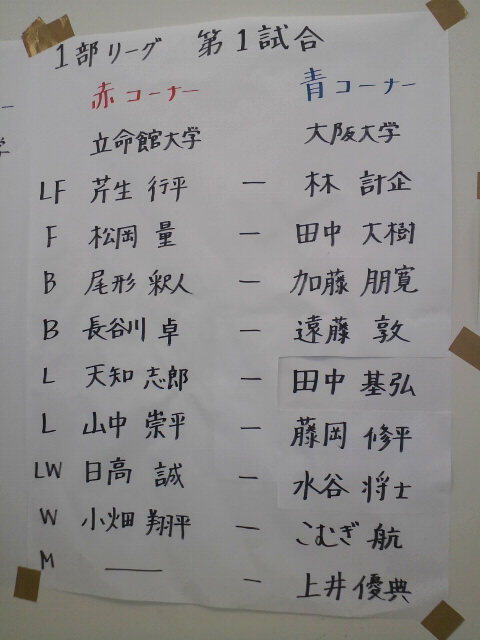 1部リーグ 第1試合
赤コーナー 青コーナー
立命館大学 大阪大学
LF 芹生 行平 — 林 計企
F 松岡 量 — 田中 大樹
B 尾形 釈人 — 加藤 朋寛
B 長谷川 卓 — 遠藤 敦
L 天知 志郎 — 田中 基弘
L 山中 崇平 — 藤岡 修平
LW 日高 誠 — 水谷 将士
W 小畑 翔平 — こむぎ 航
M — — 上井 優典